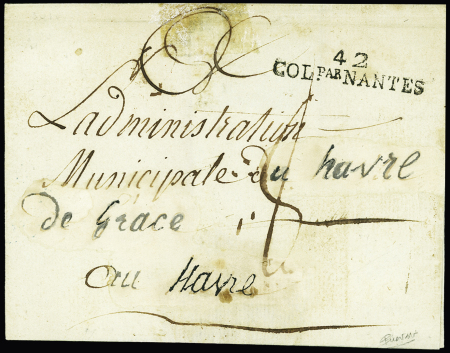 42
COL. PAR NANTES
L'administration
Municipale du havre
de Grace
au Havre